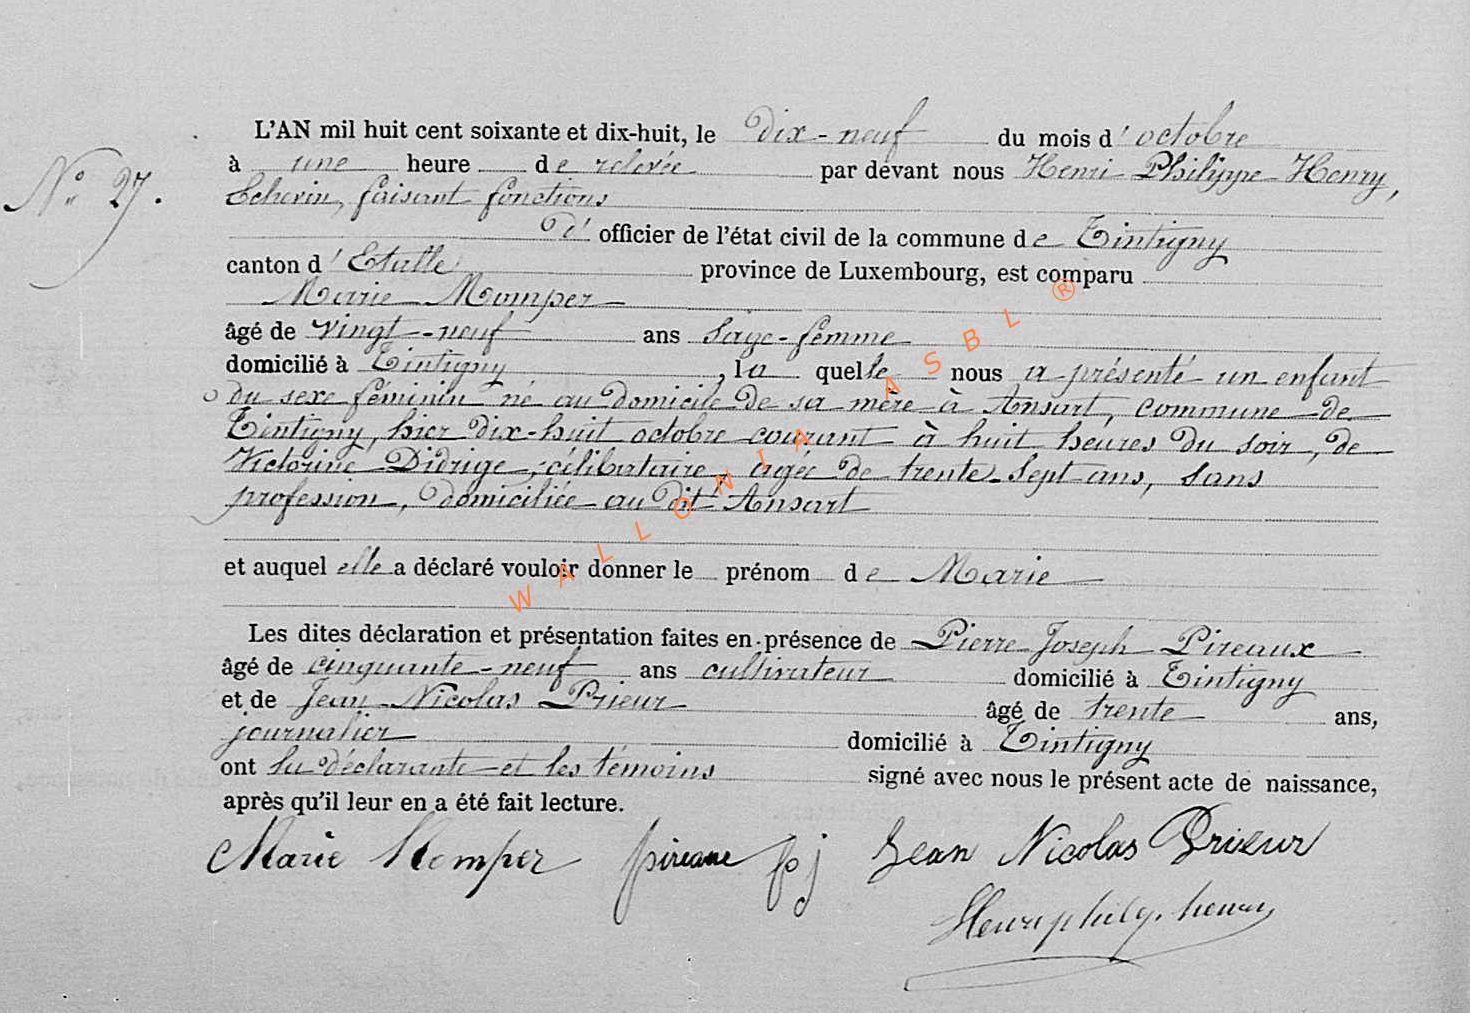 L'AN mil huit cent soixante et dix-huit, le dix-neuf du mois d'octobre
N° 27.
à une heure de relevée par devant nous Henri Philippe Henry,
Echevin, faisant fonctions
d' officier de l'état civil de la commune de Tintigny
canton d'Etalle province de Luxembourg, est comparu
Marie Momper
âgé de vingt-neuf ans Sage-femme
domicilié à Tintigny, laquelle nous a présenté un enfant
du sexe féminin né au domicile de sa mère à Ansart, commune de
Tintigny, hier dix-huit octobre courant à huit heures du soir, de
Victorine Didrige, célibataire, agée de trente-Sept ans, Sans
profession, domiciliée au dit Ansart
et auquel elle a déclaré vouloir donner le prénom de Marie
Les dites déclaration et présentation faites en présence de Pierre Joseph Pireaux
âgé de cinquante-neuf ans cultivateur domicilié à Tintigny
et de Jean Nicolas Prieur âgé de trente ans,
journalier domicilié à Tintigny
ont la déclarante et les témoins signé avec nous le présent acte de naissance,
après qu'il leur en a été fait lecture.
Marie Momper pireaux pj Jean Nicolas Prieur
Henri philip. henry
WALLONIA ASBL ®